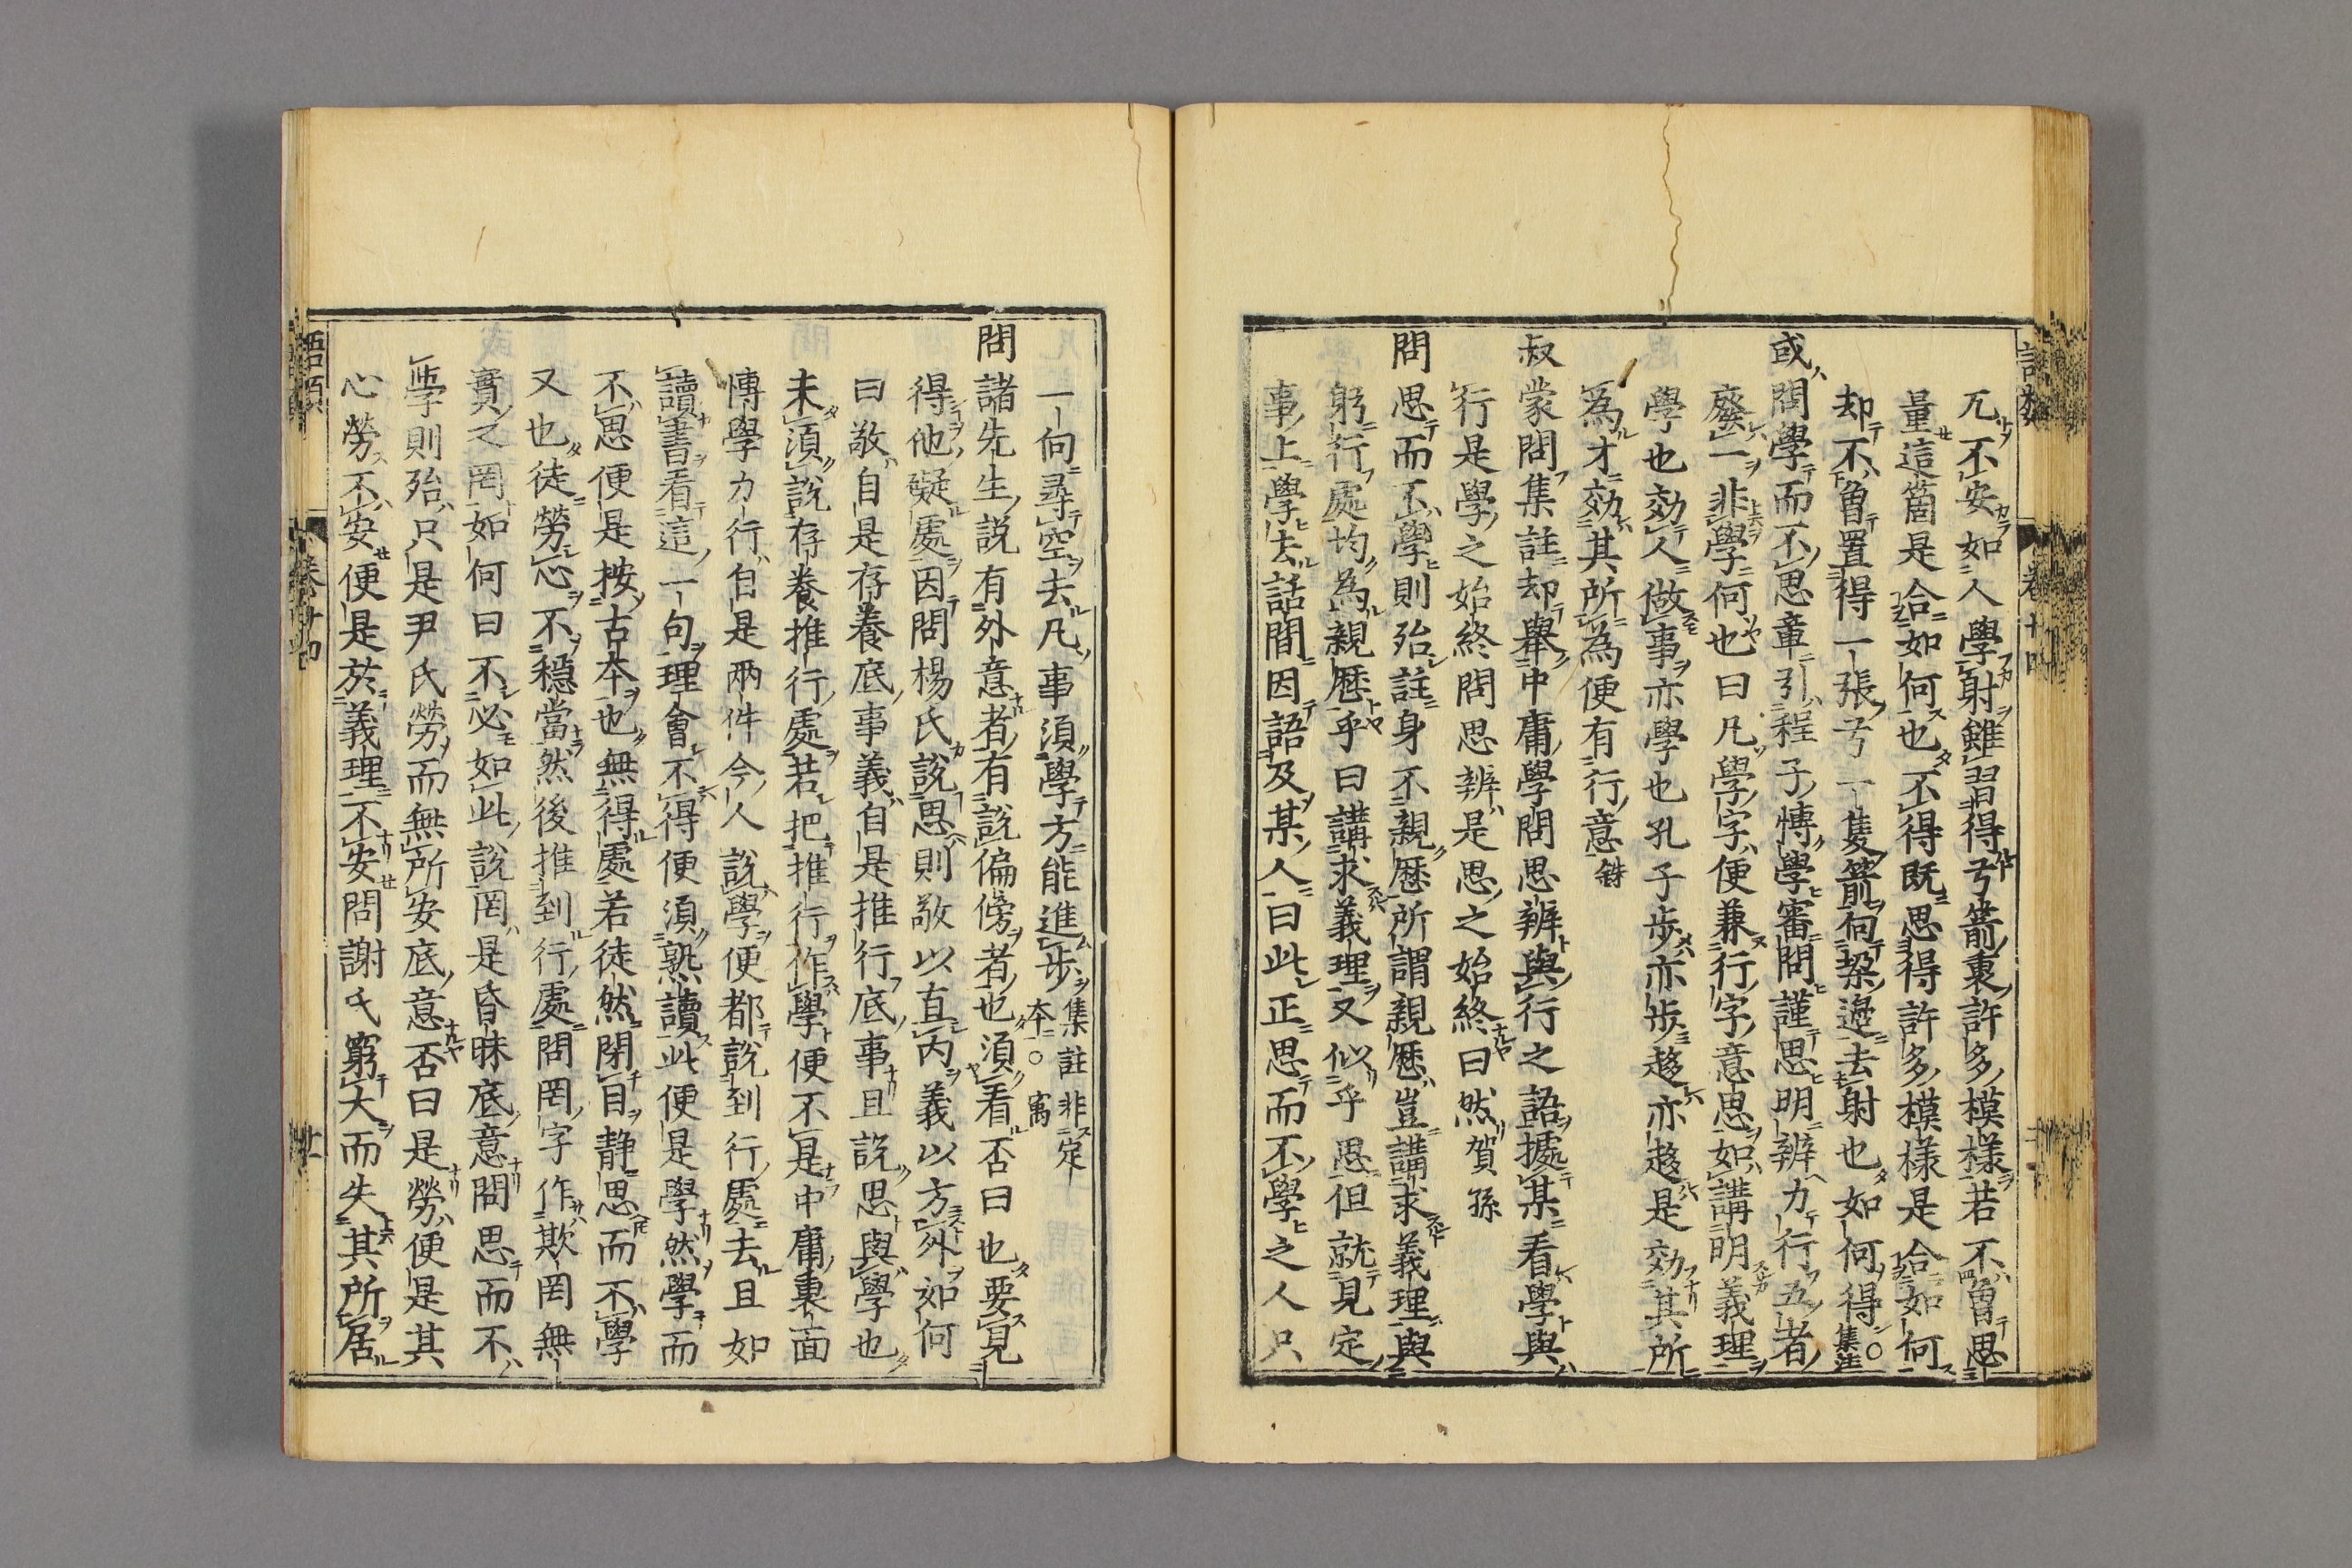 兀不安如人學射雖習得弓箭裏許多模樣若不曾思
量這箇是合如何也不得既思得許多模樣是合如何
却不曾置得一張弓一隻箭向垜邊去射也如何得○集注
或問學而不思章引程子博學審問謹思明辨力行五者
廢一非學何也曰凡學字便兼行字意思如講明義理
學也効人做事亦學也孔子步亦步趍亦趍是効其所
為才効其所為便有行意銖
叔蒙問集註却舉中庸學問思辨與行之語據某看學與
行是學之始終問思辨是思之始終曰然賀孫
問思而不學則殆註身不親歴所謂親歴豈講求義理與
躬行處均為親歴乎曰講求義理又似乎思但就見定
事上學去話間因語及某人曰此正思而不學之人只
一向尋空去凡事須學方能進步集註非定本○㝢
問諸先生説有外意者有說偏傍者也須看否曰也要見
得他礙處因問楊氏說思則敬以直内義以方外如何
曰敬自是存養底事義自是推行底事且說思與學也
未須說存養推行處若把推行作學便不是中庸裏面
博學力行自是兩件今人說學便都說到行處去且如
讀書看這一句理會不得便須熟讀此便是學然學而
不思便是按古本也無得處若徒然閉目静思而不學
又也徒勞心不穩當然後推到行處問罔字作欺罔無
實之罔如何曰不必如此説罔是昏昧底意問思而不
學則殆只是尹氏勞而無所安底意否曰是勞便是其
心勞不安便是於義理不安問謝氏窮大而失其所居
語類
卷十四